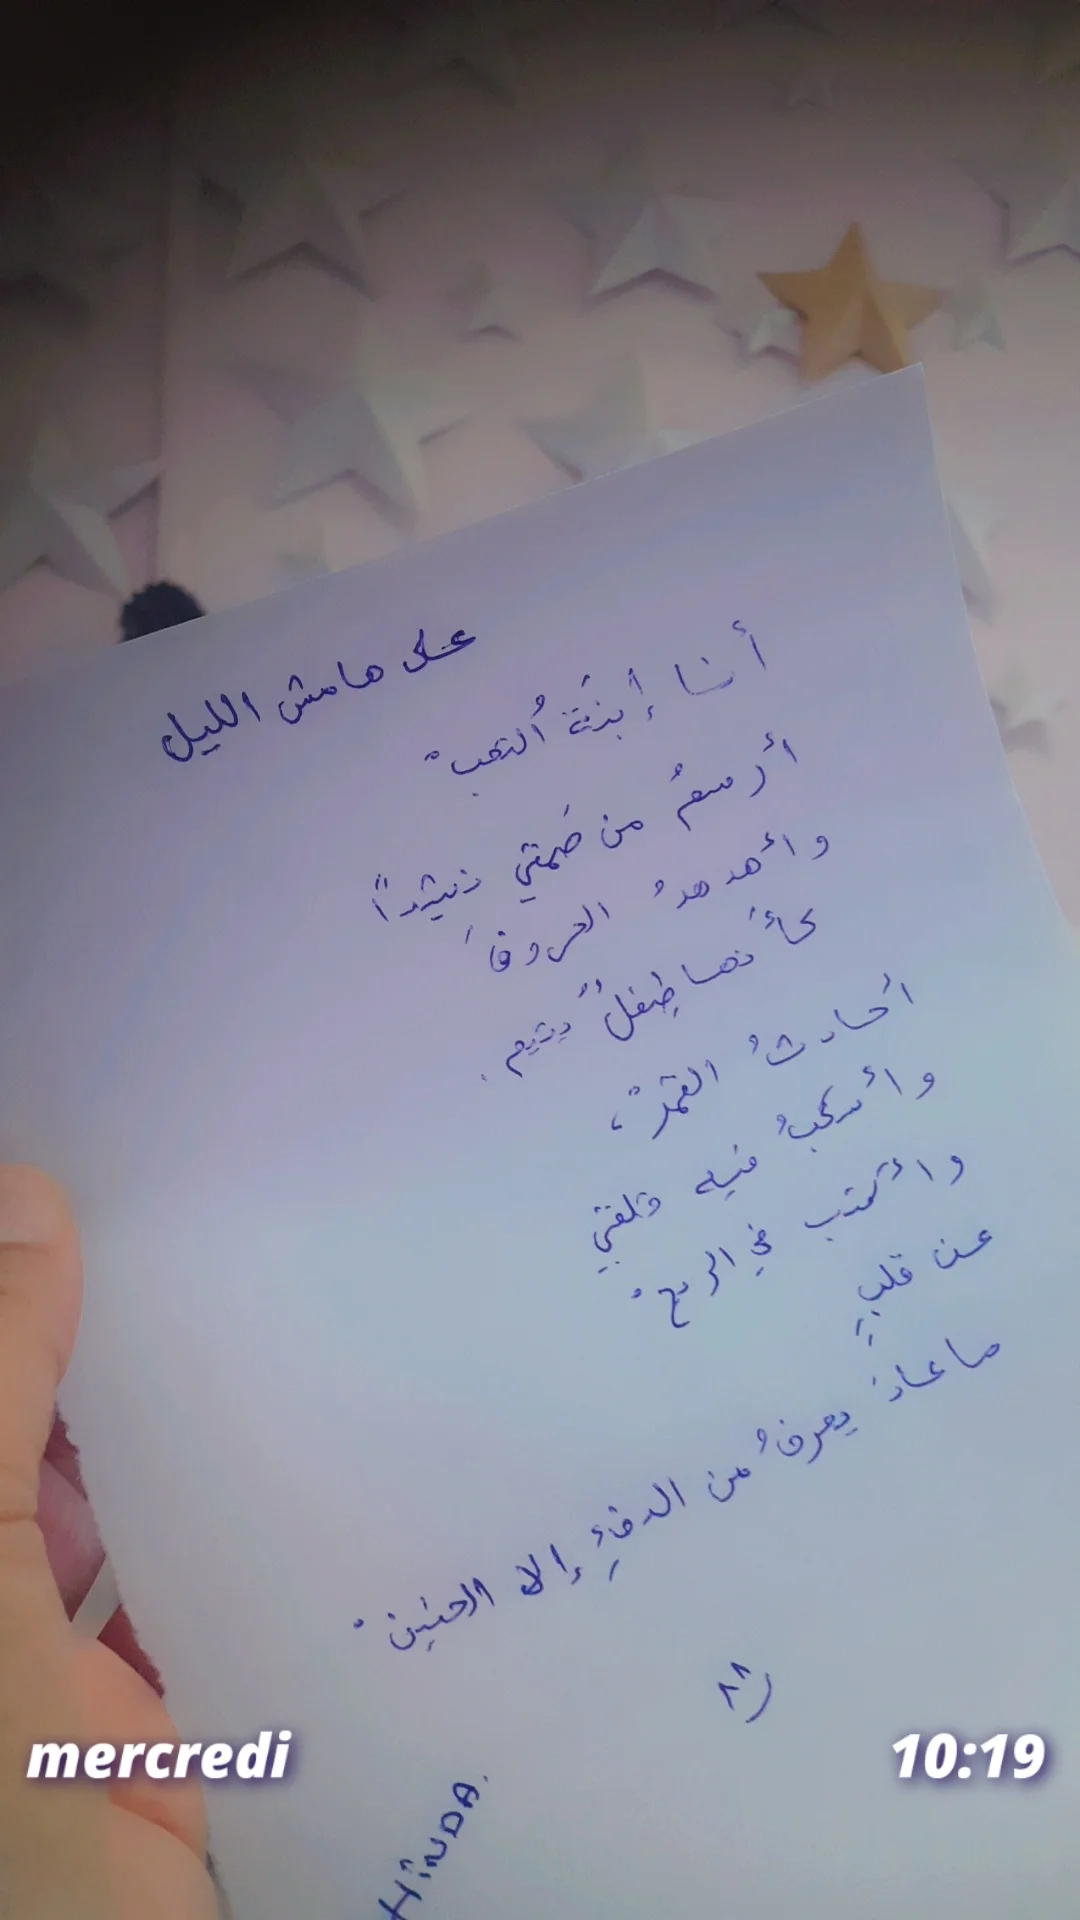 على هامش الليل
أنا إبنَة اُلتعب.
أرسمُ من صَمتي نَشِيداً
وأهدهدُ الحروفَ
كأنها طِفلٌ يتيم.
أحادثُ القمرَ،
وأسكبُ فيه قلقي
وأكتب في الريح.
عن قلبٍ
ما عادَ يعرفُ من الدفءِ إلا الحنين.
HiNDA.
mercredi
10:19